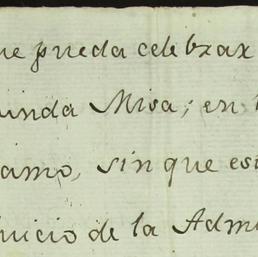 ue pueda celebrar
unda Misa; en
amo, sin que es
nuicio de la Adm